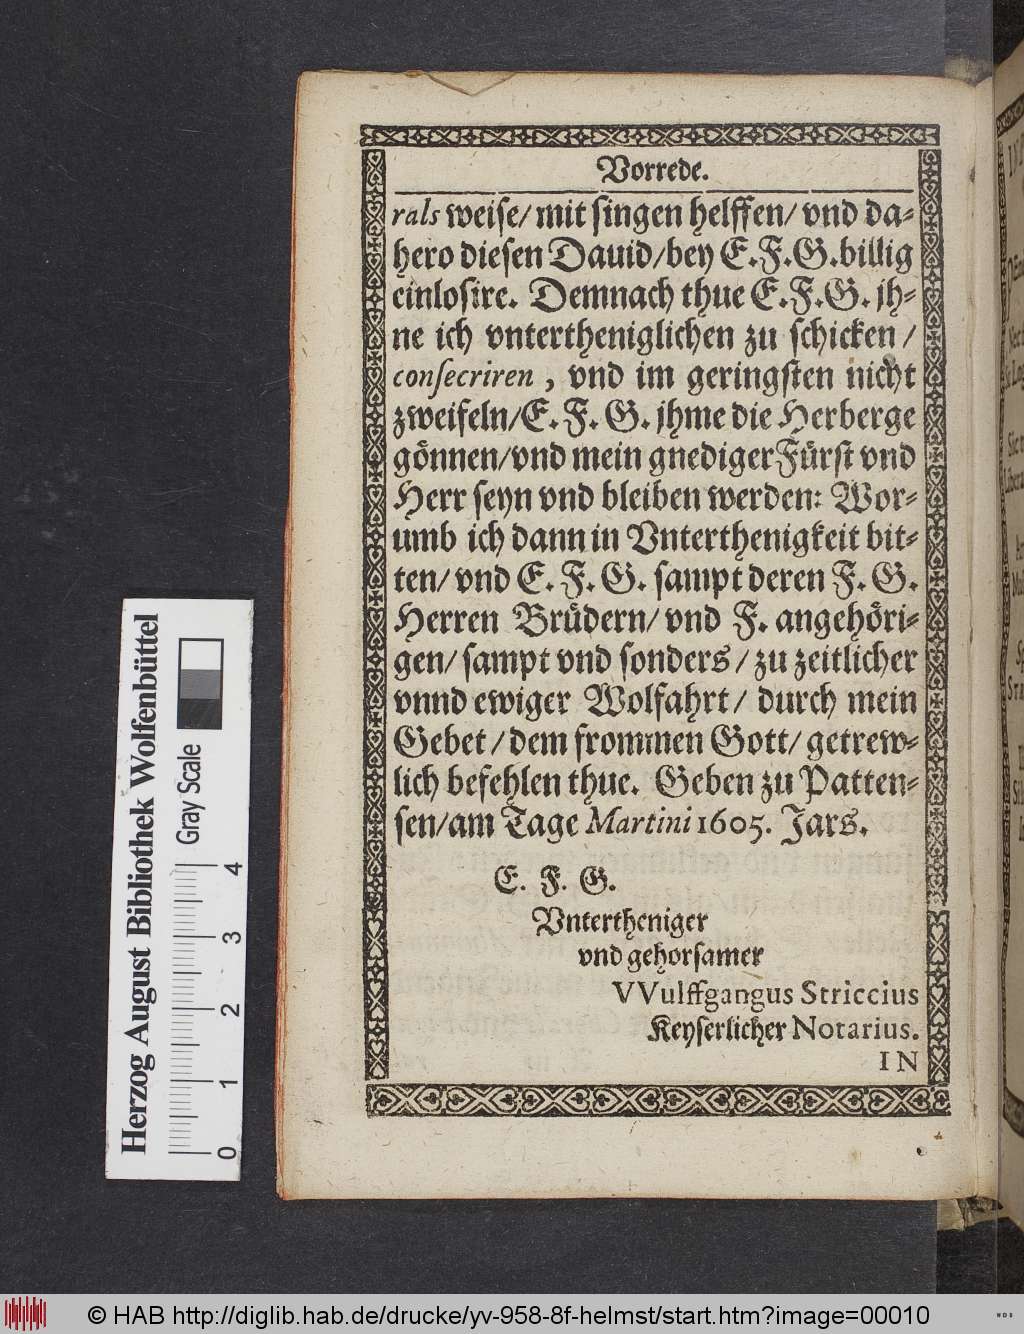 Vorrede.
rals weise/ mit singen helffen/ vnd da-
hero diesen Dauid/bey E.F.G.billig
einlosire. Demnach thue E.F.G. jh-
ne ich vntertheniglichen zu schicken/
consecriren, vnd im geringsten nicht
zweifeln/E. F. G. jhme die Herberge
gönnen/vnd mein gnediger Fürst vnd
Herr seyn vnd bleiben werden: Wor-
umb ich dann in Vnterthenigkeit bit-
ten/ vnd E. F. G. sampt deren F. G.
Herren Brüdern/ vnd F. angehöri-
gen/ sampt vnd sonders/ zu zeitlicher
vnnd ewiger Wolfahrt/ durch mein
Gebet/dem frommen Gott/ getrew-
lich befehlen thue. Geben zu Patten-
sen/am Tage Martini 1605. Jars.
E. F. G.
Vntertheniger
vnd gehorsamer
VVulffgangus Striccius
Keyserlicher Notarius.
IN
Herzog August Bibliothek Wolfenbüttel
Gray Scale
0 1 2 3 4
© HAB http://diglib.hab.de/drucke/yv-958-8f-helmst/start.htm?image=00010